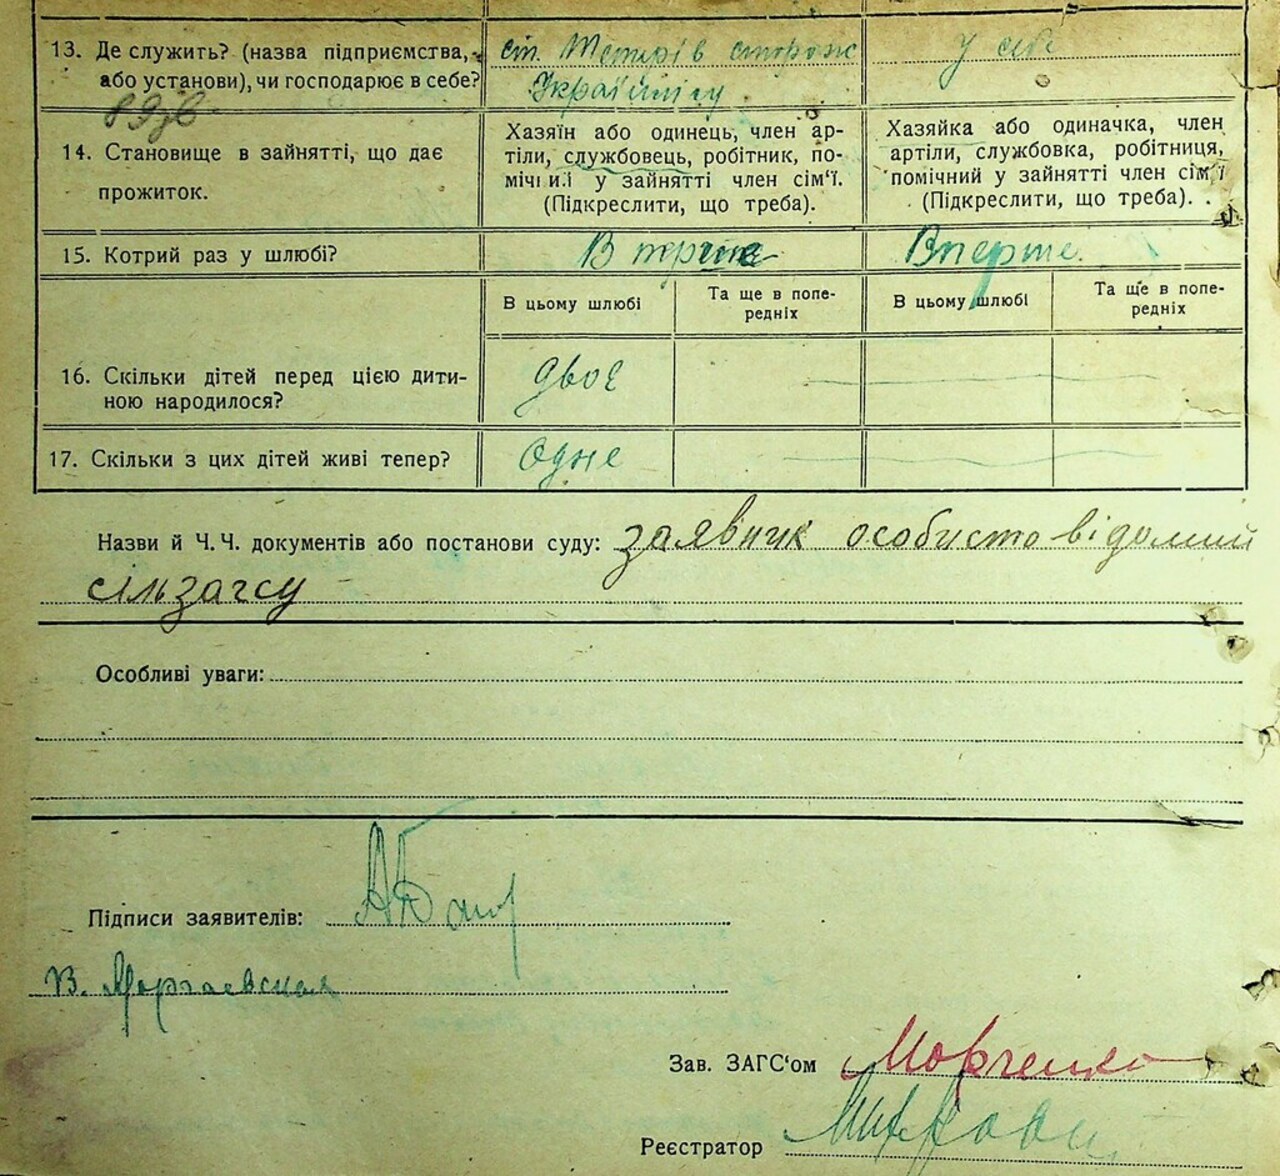 13. Де служить? (назва підприємства, або установи), чи господарює в себе?
ст. Тетерів сторож
Українлісу
у себе
14. Становище в зайнятті, що дає прожиток.
Хазяїн або одинець, член ар-
тіли, службовець, робітник, по-
мічний у зайнятті член сім‘ї.
(Підкреслити, що треба).
Хазяйка або одиначка, член
артіли, службовка, робітниця,
помічний у зайнятті член сім‘ї
(Підкреслити, що треба).
15. Котрий раз у шлюбі?
Вперше
Вперше.
В цьому шлюбі
Та ще в попе-
редніх
В цьому шлюбі
Та ще в попе-
редніх
16. Скільки дітей перед цією дити-
ною народилося?
двоє
17. Скільки з цих дітей живі тепер?
Одне
Назви й Ч. Ч. документів або постанови суду: заявник особисто відомий
сільзагсу
Особливі уваги:
Підписи заявителів:
В.
Зав. ЗАГС‘ом Марченко
Реєстратор